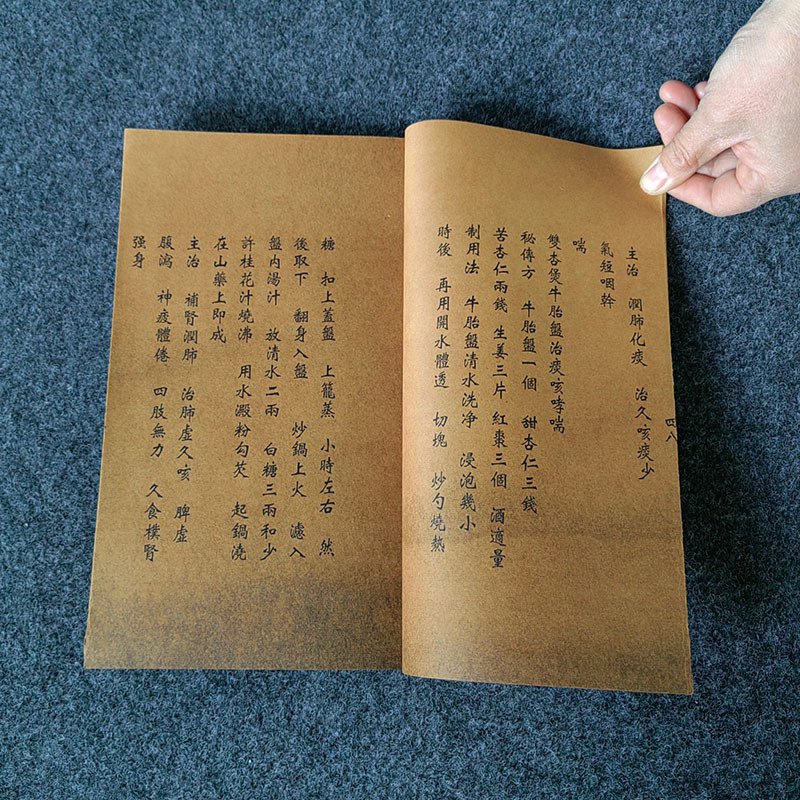 主治 潤肺化痰 治久咳痰少
氣短咽幹
喘
雙杏煲牛胎盤治痰咳哮喘
秘傳方 牛胎盤一個 甜杏仁三錢
苦杏仁兩錢 生姜三片 紅棗三個 酒適量
制用法 牛胎盤清水洗净 浸泡幾小
時後 再用開水體透 切塊 炒勺燒熱
四八
糖 扣上蓋盤 上籠蒸 小時左右 然
後取下 翻身入盤 炒鍋上火 濾入
盤内湯汁 放清水二兩 白糖三兩和少
許桂花汁燒沸 用水澱粉勾芡 起鍋澆
在山藥上即成
主治 補腎潤肺 治肺虚久咳 脾虚
腹瀉 神疲體倦 四肢無力 久食樸腎
强身